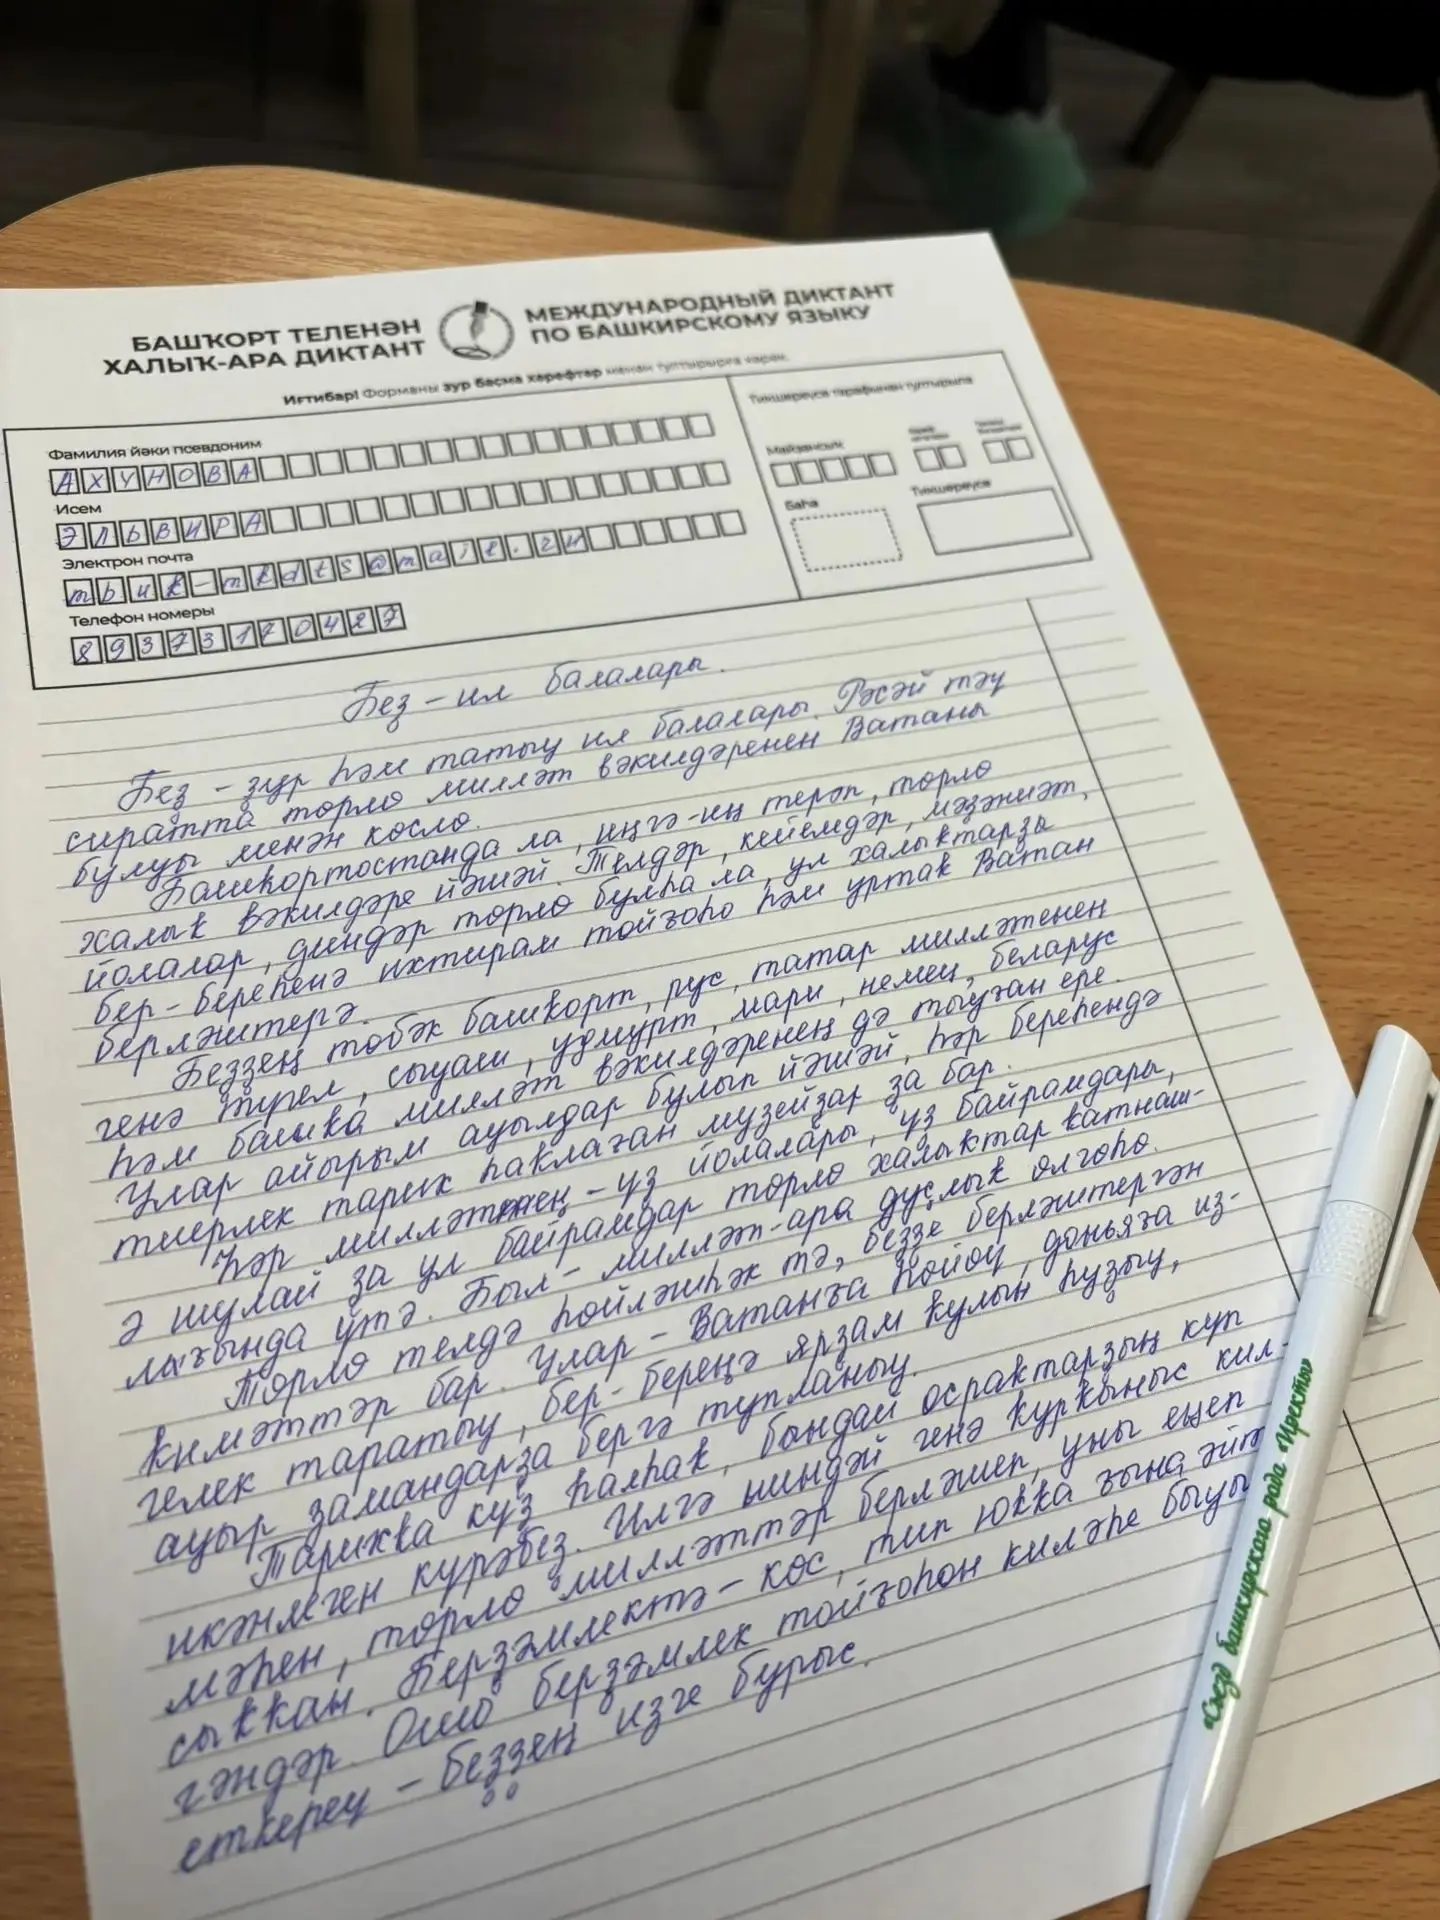 БАШҠОРТ ТЕЛЕНӘН
ХАЛЫҠ-АРА ДИКТАНТ
МЕЖДУНАРОДНЫЙ ДИКТАНТ
ПО БАШКИРСКОМУ ЯЗЫКУ
Иғтибар! Форманы ҙур баҫма хәрефтәр менән тултырырға кәрәк.
Фамилия йәки псевдоним
АХУНОВА
Исем
ЭЛЬВИРА
Электрон почта
Телефон номеры
89373170427
Тикшереүсе тарафынан тултырыла
Майҙансыҡ
Баһа
Тикшереүсе
Беҙ – ил балалары.
Беҙ – ҙур һәм татыу ил балалары. Рәсәй тәү
сиратта төрлө милләт вәкилдәренең Ватаны
булыуы менән көслө.
Башҡортостанда ла, иңгә-иң терәп, төрлө
халыҡ вәкилдәре йәшәй. Телдәр, кейемдәр, мәҙәниәт,
йолалар, диндәр төрлө булһа ла, ул халыҡтарҙы
бер-береһенә ихтирам тойғоһо һәм уртаҡ Ватан
берләштерә.
Беҙҙең төбәк башҡорт, рус, татар милләтенең
генә түгел, сыуаш, удмурт, мари, немец, беларус
һәм башҡа милләт вәкилдәренең дә тыуған ере.
Улар айырым ауылдар булып йәшәй, һәр береһендә
тиерлек тарих һаҡлаған музейҙар ҙа бар.
Һәр милләттең – үҙ йолалары, үҙ байрамдары,
ә шулай ҙа ул байрамдар төрлө халыҡтар ҡатнаш-
лығында үтә. Был – милләт-ара дуҫлыҡ өлгөһө.
Төрлө телдә һөйләшһәк тә, беҙҙе берләштергән
ҡиммәттәр бар. Улар – Ватанға һөйөү, донъяға из-
гелек таратыу, бер-береңә ярҙам ҡулын һуҙыу,
ауыр замандарҙа бергә тупланыу.
Тарихҡа күҙ һалһаҡ, бындай осраҡтарҙың күп
икәнлеген күрәбеҙ. Илгә ниндәй генә ҡурҡыныс кил-
мәһен, төрлө милләттәр берләшеп, уны еңеп
сыҡҡан. Берҙәмлектә – көс, тип юҡҡа ғына әйт
гәндәр. Ошо берҙәмлек тойғоһон киләһе быуы
еткереү – беҙҙең изге бурыс.
«Съезд башкирского рода «Иректы»